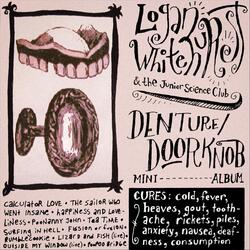 Logan
Whitehurst
& the Junior Science Club
DENTURE/
DOORKNOB
MINI ALBUM
CALCULATOR LOVE • THE SAILOR WHO
WENT INSANE • HAPPINESS AND LOVE-
LINESS • POONANNY JOHN • TEA TIME •
SURFING IN HELL • FUSION OR FICTION •
BUMBLECOOKIE • LIZARD AND FISH (LIVE) •
OUTSIDE MY WINDOW (LIVE) •
BRIDGE
CURES: cold, fever,
heaves, gout, tooth-
ache, rickets, piles,
anxiety, nausea, deaf-
ness, consumption